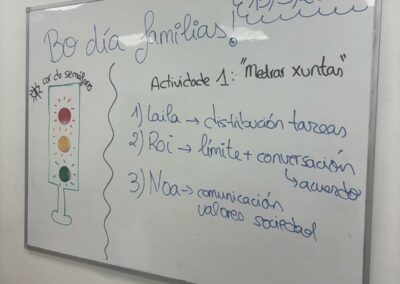 Bo día familias!
cor do semáforo
Actividade 1: "Medrar xuntas"
1) Laila → distribución tareas
2) Roi → límite + conversación
↳ acuerdo
3) Noa → comunicación
valores sociedad